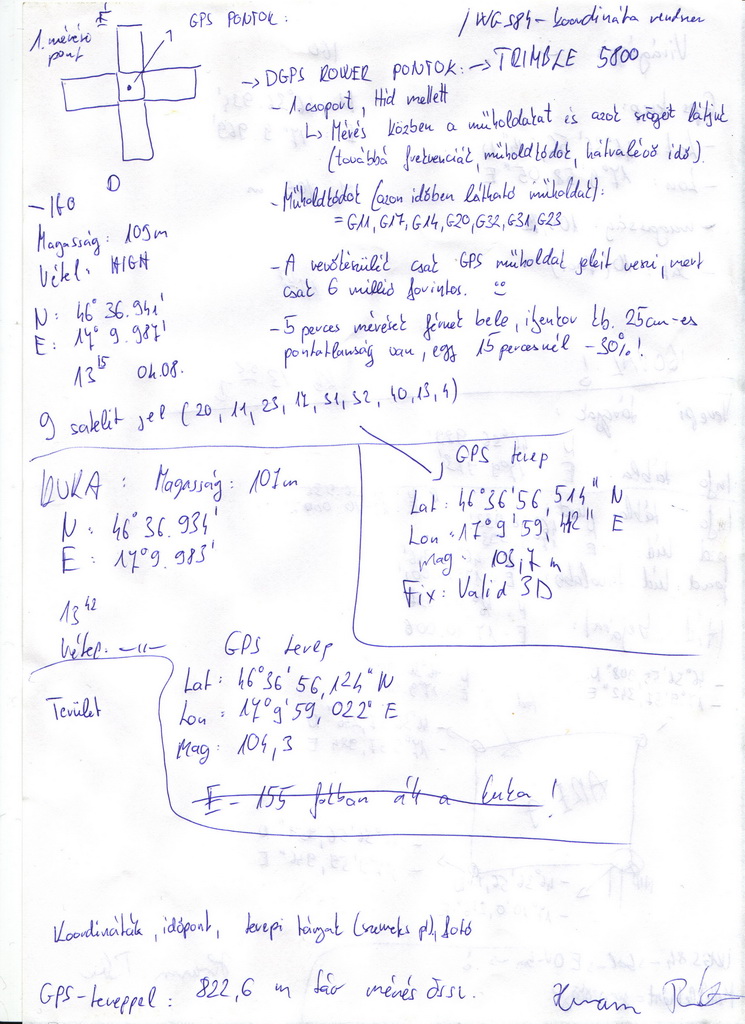 É
GPS PONTOK:
/WGS84 - koordináta rendszer
1. mérési
pont
D
→ DGPS ROVER PONTOK: → TRIMBLE 5800
- 1. csoport, Híd mellett
↳ Mérés közben a műholdakat és azok szögét látjuk
(továbbá frekvenciát, műholdkódok, hátralévő idő).
- Műholdkódok (azon időben látható műholdak):
= G11, G17, G14, G20, G32, G31, G23
- A vevőkészülék csak GPS műholdak jeleit veszi, mert
csak 6 millió forintos.
- 5 perces mérések fértek bele, ilyenkor kb. 25cm-es
pontatlanság van, egy 15 percesnél -30%!
- 160
Magasság: 109m
Vétel: HIGH
N: 46° 36.941'
E: 17° 9.987'
13 15 04.08.
9 satelit jel (20, 11, 23, 17, 31, 32, 40, 13, 4)
GPS terep
Lat: 46°36'56,514" N
Lon: 17°9'59,412" E
Mag: 103,7 m
Fix: Valid 3D
KUKA: Magasság: 107m
N: 46° 36.934'
E: 17° 9.983'
13 42
Vétel: -"-
GPS terep
Lat: 46°36'56,124" N
Lon: 17°9'59,022" E
Mag: 104,3
E - 155 fokban áll a kuka!
Terület
Koordináták, időpont, terepi tárgyak (szemetes pl), fotó
GPS-tereppel: 822,6 m táv mérés össz.